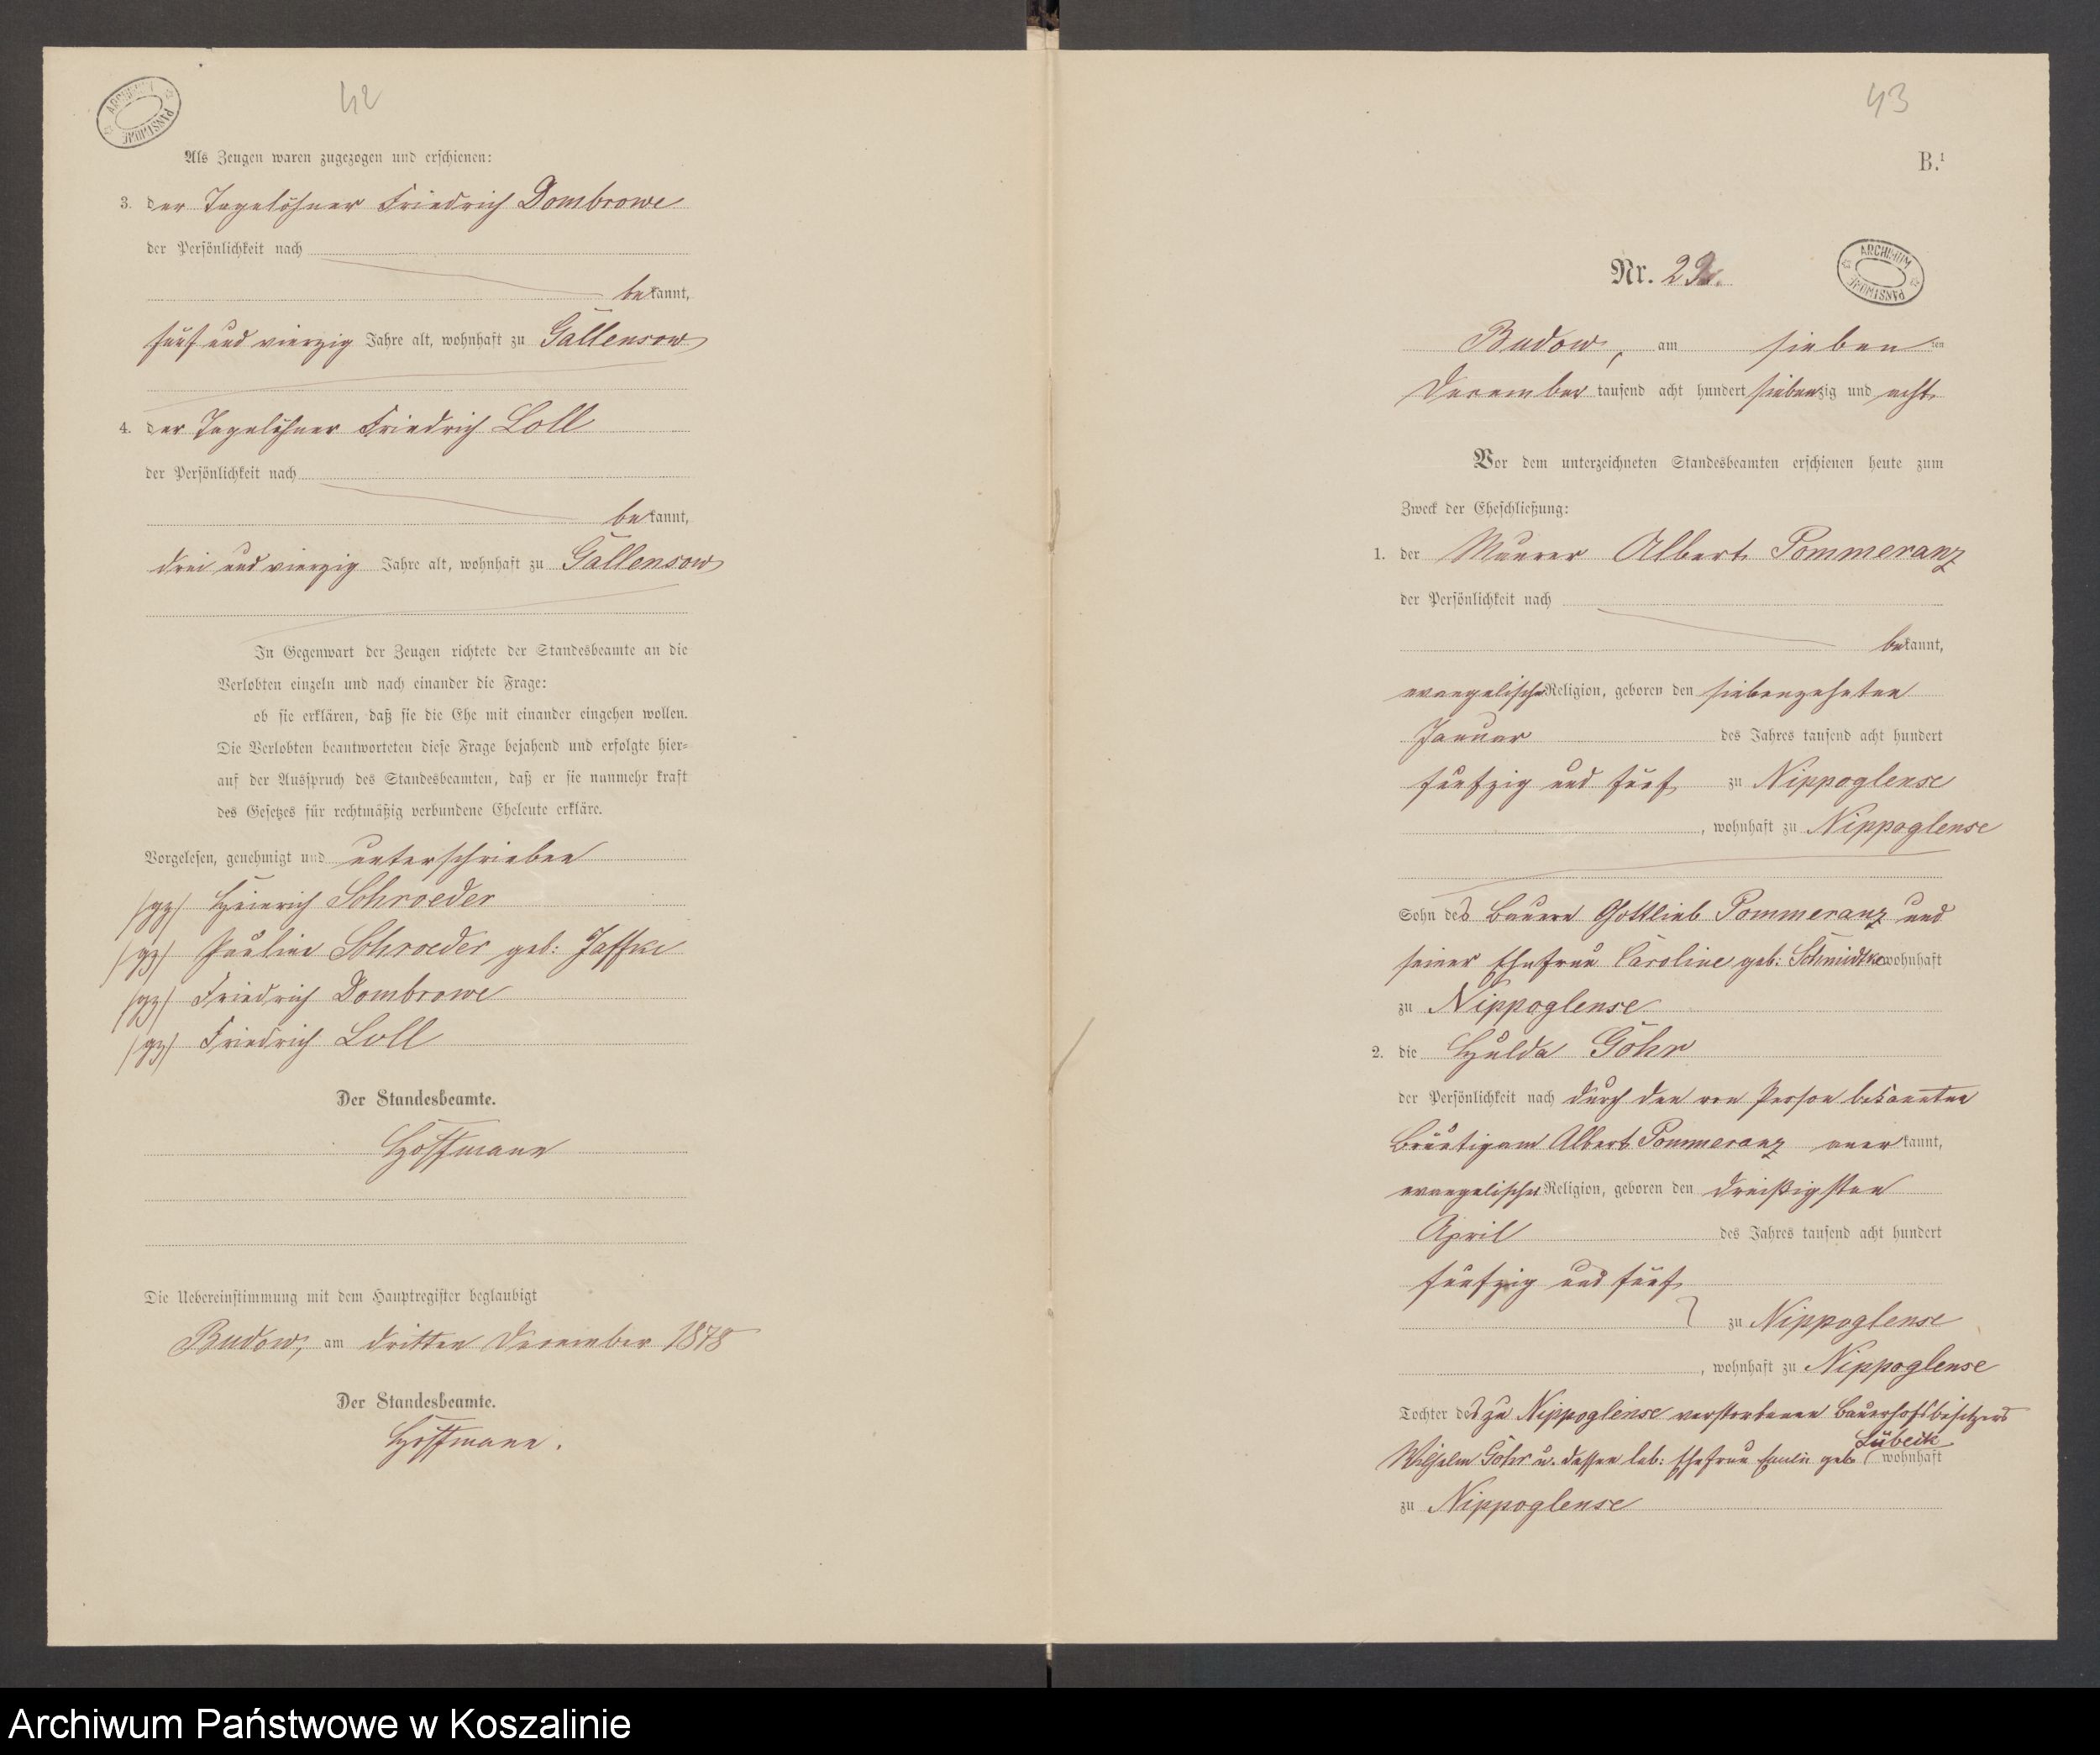 42
ARCHIWUM PAŃSTWOWE
Als Zeugen waren zugezogen und erschienen:
3. der Tagelöhner Friedrich Dombrowe
der Persönlichkeit nach
bekannt,
fünf und vierzig Jahre alt, wohnhaft zu Gallensow
4. der Tagelöhner Friedrich Loll
der Persönlichkeit nach
bekannt,
drei und vierzig Jahre alt, wohnhaft zu Gallensow
In Gegenwart der Zeugen richtete der Standesbeamte an die
Verlobten einzeln und nach einander die Frage:
ob sie erklären, daß sie die Ehe mit einander eingehen wollen.
Die Verlobten beantworteten diese Frage bejahend und erfolgte hier-
auf der Ausspruch des Standesbeamten, daß er sie nunmehr kraft
des Gesetzes für rechtmäßig verbundene Eheleute erkläre.
Vorgelesen, genehmigt und unterschrieben
/gz/ Heinrich Schroeder
/gz/ Pauline Schroeder geb: Jaffke
/gz/ Friedrich Dombrowe
/gz/ Friedrich Loll
Der Standesbeamte.
Hoffmann
Die Uebereinstimmung mit dem Hauptregister beglaubigt
Budow, am dritten Dezember 1878
Der Standesbeamte.
Hoffmann.
43
B.¹
Nr. 29.
ARCHIWUM PAŃSTWOWE
Budow, am sieben ten
Dezember tausend acht hundert siebenzig und acht
Vor dem unterzeichneten Standesbeamten erschienen heute zum
Zweck der Eheschließung:
1. der Maurer Albert Pommeranz
der Persönlichkeit nach
bekannt,
evangelischer Religion, geboren den siebenzehnten
Januar des Jahres tausend acht hundert
fünfzig und fünf zu Nippoglense
, wohnhaft zu Nippoglense
Sohn des Bauern Gottlieb Pommeranz und
seiner Ehefrau Caroline geb: Schmidtke wohnhaft
zu Nippoglense
2. die Hulda Göhr
der Persönlichkeit nach durch den von Person bekannten
Bräutigam Albert Pommeranz anerkannt,
evangelischer Religion, geboren den dreißigsten
April des Jahres tausend acht hundert
fünfzig und fünf
zu Nippoglense
, wohnhaft zu Nippoglense
Tochter des zu Nippoglense verstorbenen Bauerhofsbesitzers
Wilhelm Göhr u. dessen leb: Ehefrau geb Lübeck wohnhaft
zu Nippoglense
Archiwum Państwowe w Koszalinie